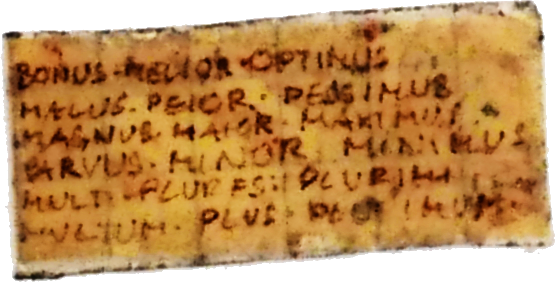 BONUS·MELIOR·OPTIMUS
MALUS·PEIOR·PESSIMUS
MAGNUS·MAIOR·MAXIMUS
PARVUS·MINOR·MINIMUS
MULTI·PLURES·PLURIMI
MULTUM·PLUS·PLURIMUM·